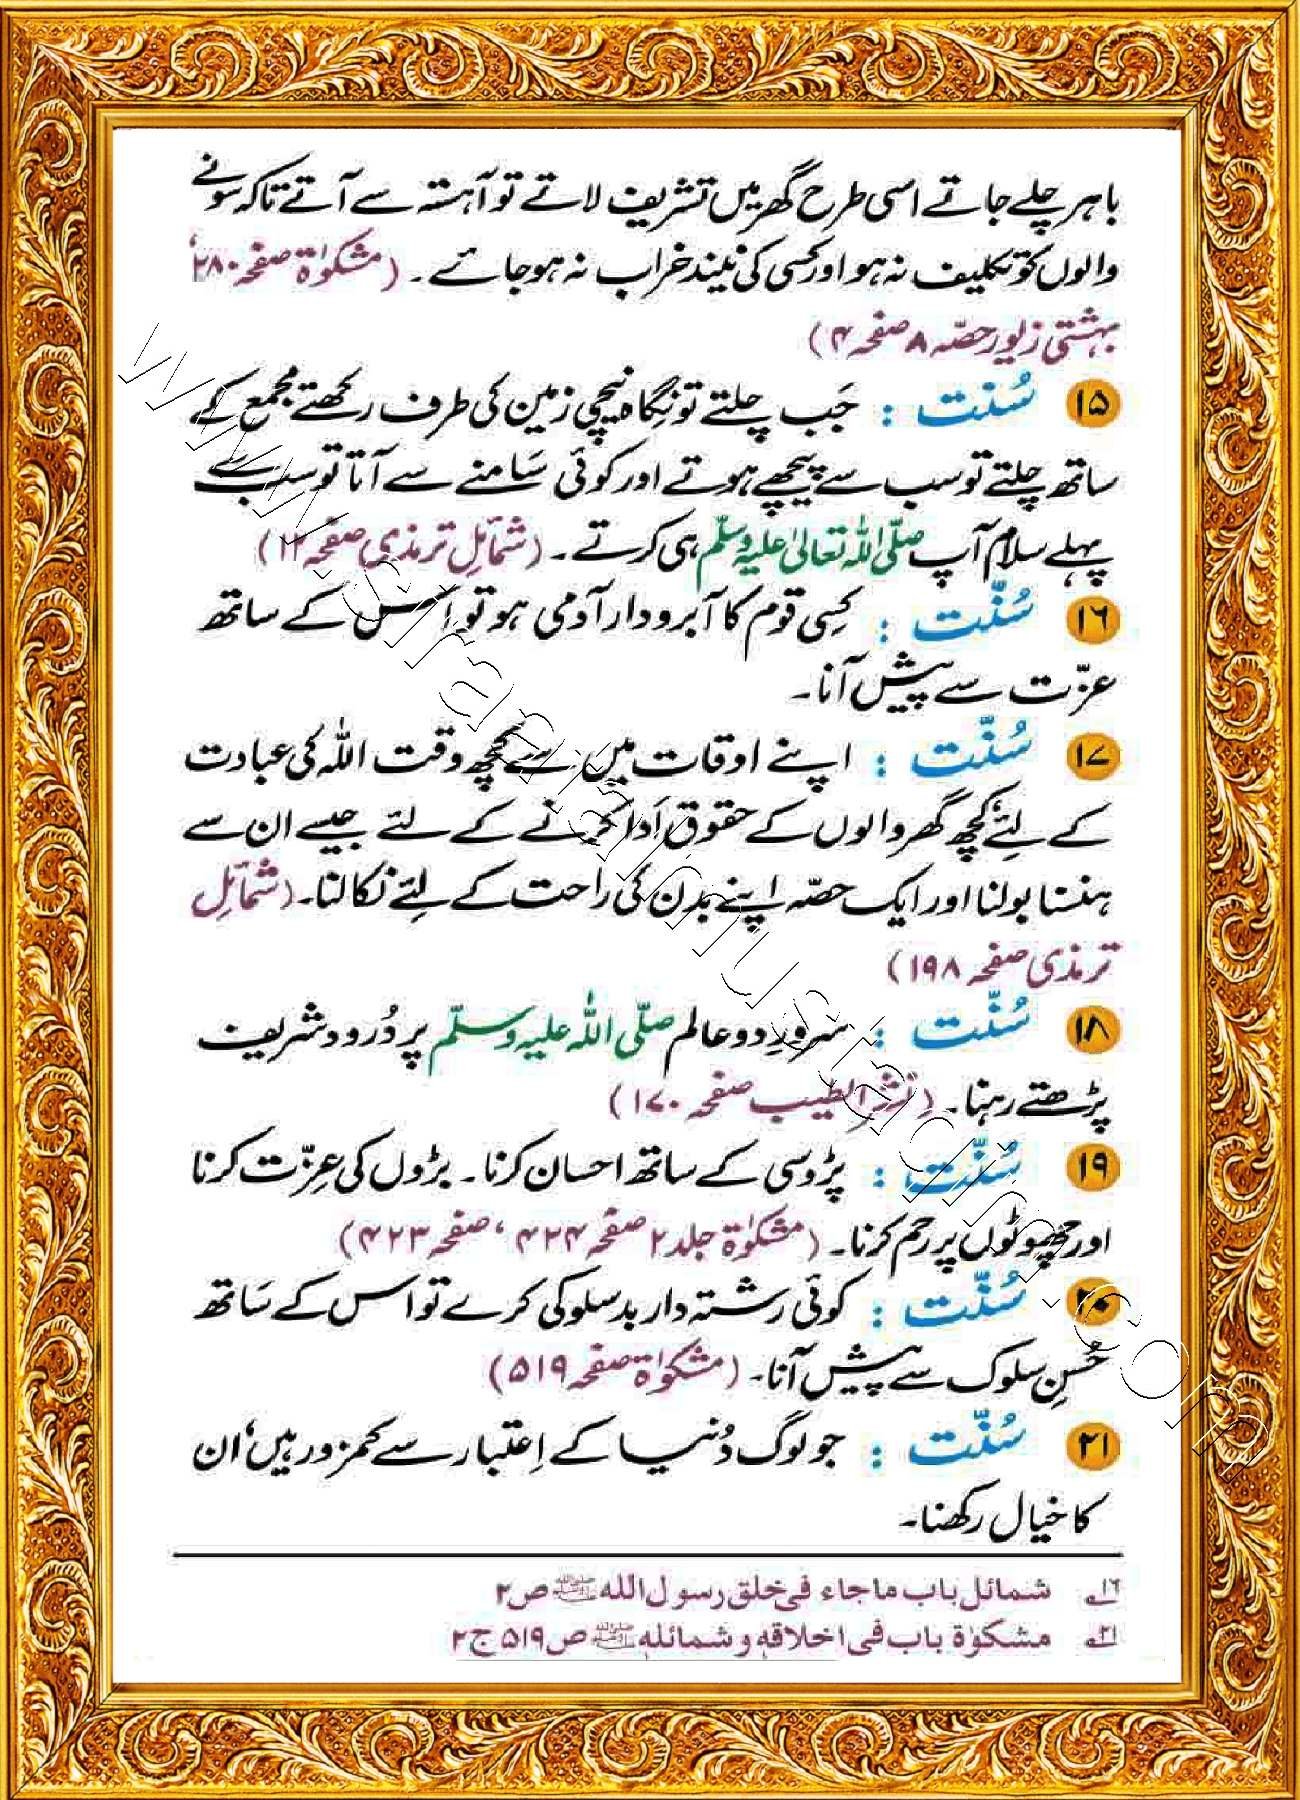 باہر چلے جاتے اسی طرح گھر میں تشریف لاتے تو آہستہ سے آتے تاکہ سونے
والوں کو تکلیف نہ ہو اور کسی کی نیند خراب نہ ہو جائے۔ (مشکوٰۃ صفحہ ۲۸۰،
بہشتی زیور حصّہ ۸ صفحہ ۴)
۱۵ سُنّت : جَب چلتے تو نِگاہ نیچی زمین کی طرف رکھتے مجمع کے
ساتھ چلتے تو سب سے پیچھے ہوتے اور کوئی سَامنے سے آتا تو سب سے
پہلے سلام آپ صلّی اللہ تعالیٰ علیہ وسلّم ہی کرتے۔ (شمَائلِ ترمذی صفحہ ۱۲)
۱۶ سُنّت : کِسی قوم کا آبرودار آدمی ہو تو اس کے ساتھ
عزّت سے پیش آنا۔
۱۷ سُنّت : اپنے اوقات میں سے کچھ وقت اللہ کی عبادت
کے لِئے، کچھ گھر والوں کے حقوق اَدا کرنے کے لئے جیسے ان سے
ہنسنا بولنا اور ایک حصّہ اپنے بدن کی راحت کے لِئے نکالنا۔ (شمَائلِ
ترمذی صفحہ ۱۹۸)
۱۸ سُنّت : سَرورِ دو عالم صلّی اللہ علیہ وسلّم پر دُرود شریف
پڑھتے رہنا۔ (نشر الطیب صفحہ ۱۷۰)
۱۹ سُنّت : پڑوسی کے ساتھ احسان کرنا۔ بڑوں کی عِزّت کرنا
اور چھوٹوں پر رحم کرنا۔ (مشکوٰۃ جلد ۲ صفحہ ۴۲۴، صفحہ ۴۲۳)
۲۰ سُنّت : کوئی رشتہ دار بدسلوکی کرے تو اس کے سَاتھ
حُسنِ سلوک سے پیش آنا۔ (مشکوٰۃ صفحہ ۵۱۹)
۲۱ سُنّت : جو لوگ دُنیا کے اِعتبار سے کمزور ہیں، ان
کا خیال رکھنا۔
۱۶ شمائل باب ماجاء فی خلق رسول اللہ ﷺ ص ۲
۲۱ مشکوٰۃ باب فی اخلاقہ و شمائلہ ﷺ ص ۵۱۹ ج ۲